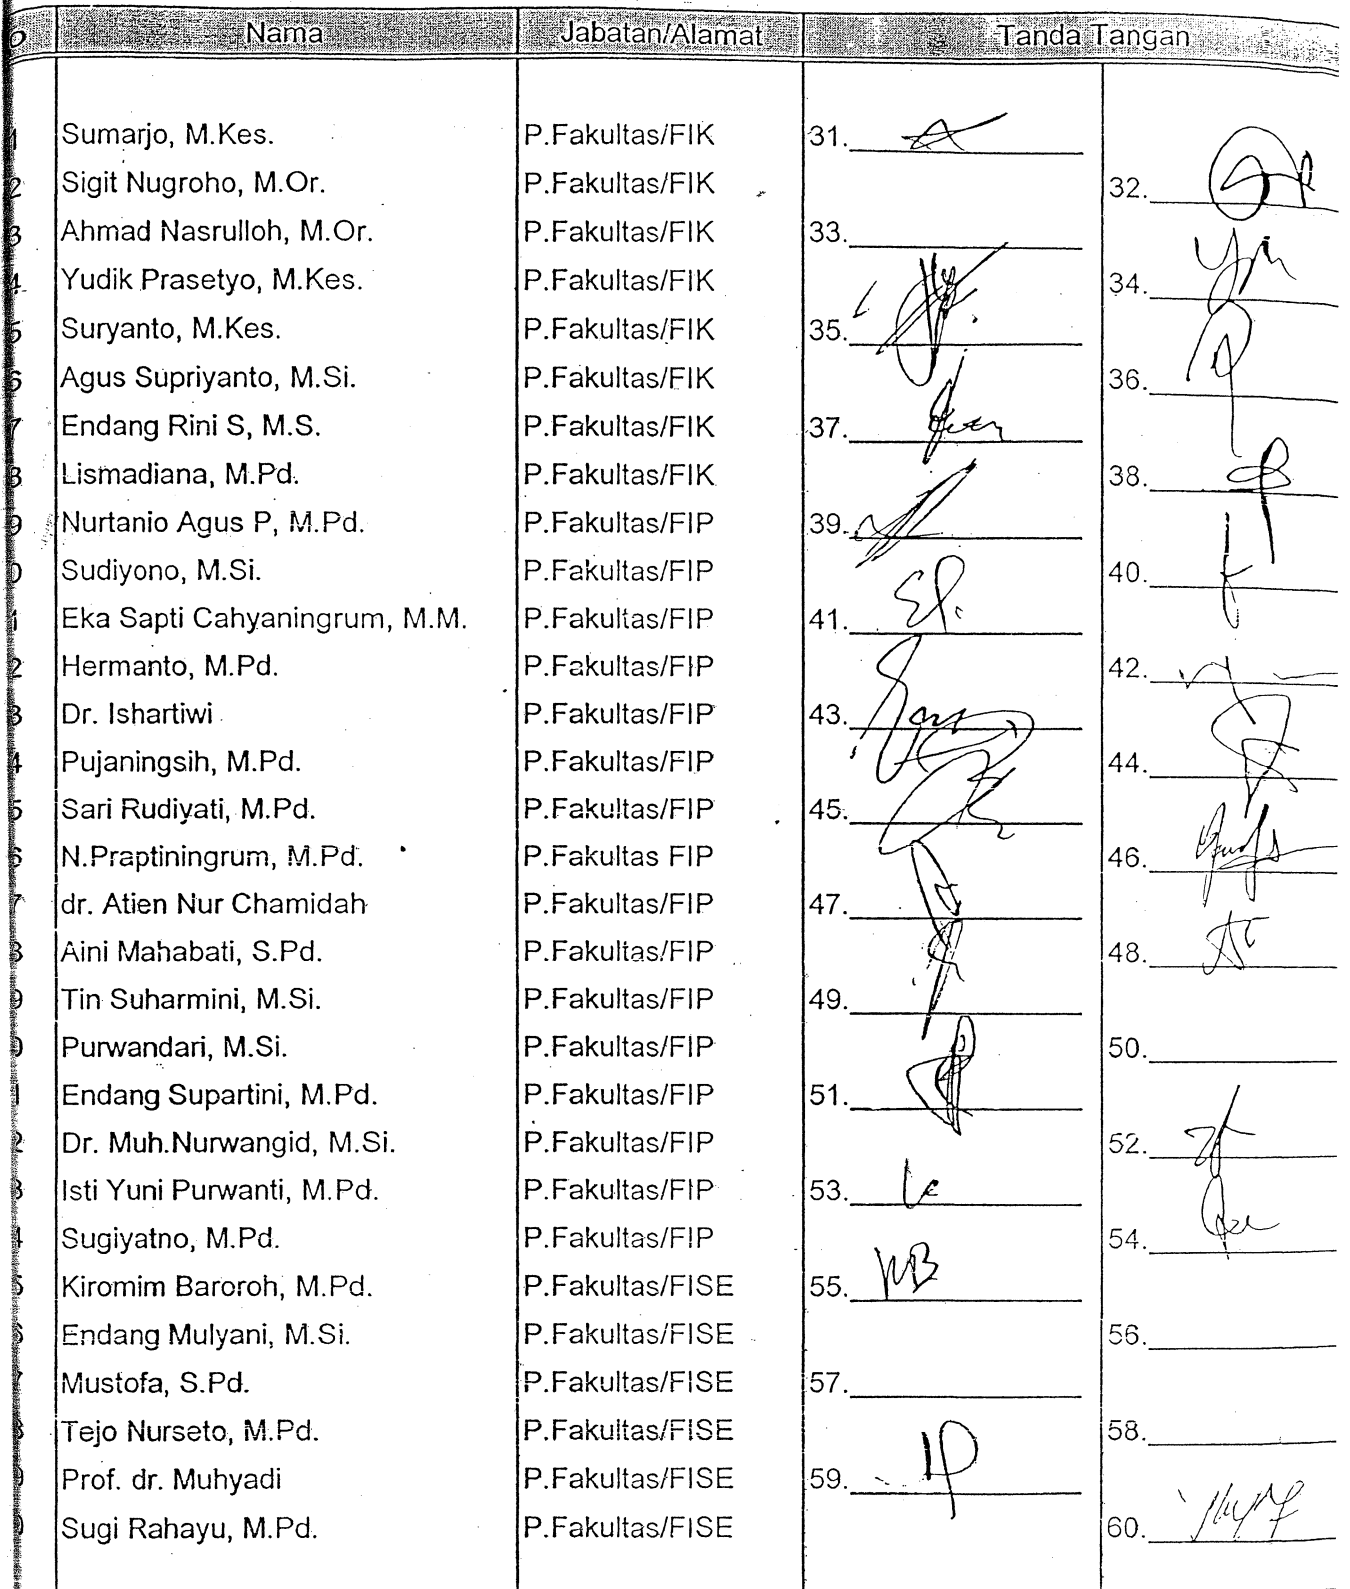 Nama Jabatan/Alamat Tanda Tangan
Sumarjo, M.Kes. P.Fakultas/FIK 31.
Sigit Nugroho, M.Or. P.Fakultas/FIK 32.
Ahmad Nasrulloh, M.Or. P.Fakultas/FIK 33.
Yudik Prasetyo, M.Kes. P.Fakultas/FIK 34.
Suryanto, M.Kes. P.Fakultas/FIK 35.
Agus Supriyanto, M.Si. P.Fakultas/FIK 36.
Endang Rini S, M.S. P.Fakultas/FIK 37.
Lismadiana, M.Pd. P.Fakultas/FIK 38.
Nurtanio Agus P, M.Pd. P.Fakultas/FIP 39.
Sudiyono, M.Si. P.Fakultas/FIP 40.
Eka Sapti Cahyaningrum, M.M. P.Fakultas/FIP 41.
Hermanto, M.Pd. P.Fakultas/FIP 42.
Dr. Ishartiwi P.Fakultas/FIP 43.
Pujaningsih, M.Pd. P.Fakultas/FIP 44.
Sari Rudiyati, M.Pd. P.Fakultas/FIP 45.
N.Praptiningrum, M.Pd. P.Fakultas FIP 46.
dr. Atien Nur Chamidah P.Fakultas/FIP 47.
Aini Mahabati, S.Pd. P.Fakultas/FIP 48.
Tin Suharmini, M.Si. P.Fakultas/FIP 49.
Purwandari, M.Si. P.Fakultas/FIP 50.
Endang Supartini, M.Pd. P.Fakultas/FIP 51.
Dr. Muh.Nurwangid, M.Si. P.Fakultas/FIP 52.
Isti Yuni Purwanti, M.Pd. P.Fakultas/FIP 53.
Sugiyatno, M.Pd. P.Fakultas/FIP 54.
Kiromim Baroroh, M.Pd. P.Fakultas/FISE 55.
Endang Mulyani, M.Si. P.Fakultas/FISE 56.
Mustofa, S.Pd. P.Fakultas/FISE 57.
Tejo Nurseto, M.Pd. P.Fakultas/FISE 58.
Prof. dr. Muhyadi P.Fakultas/FISE 59.
Sugi Rahayu, M.Pd. P.Fakultas/FISE 60.